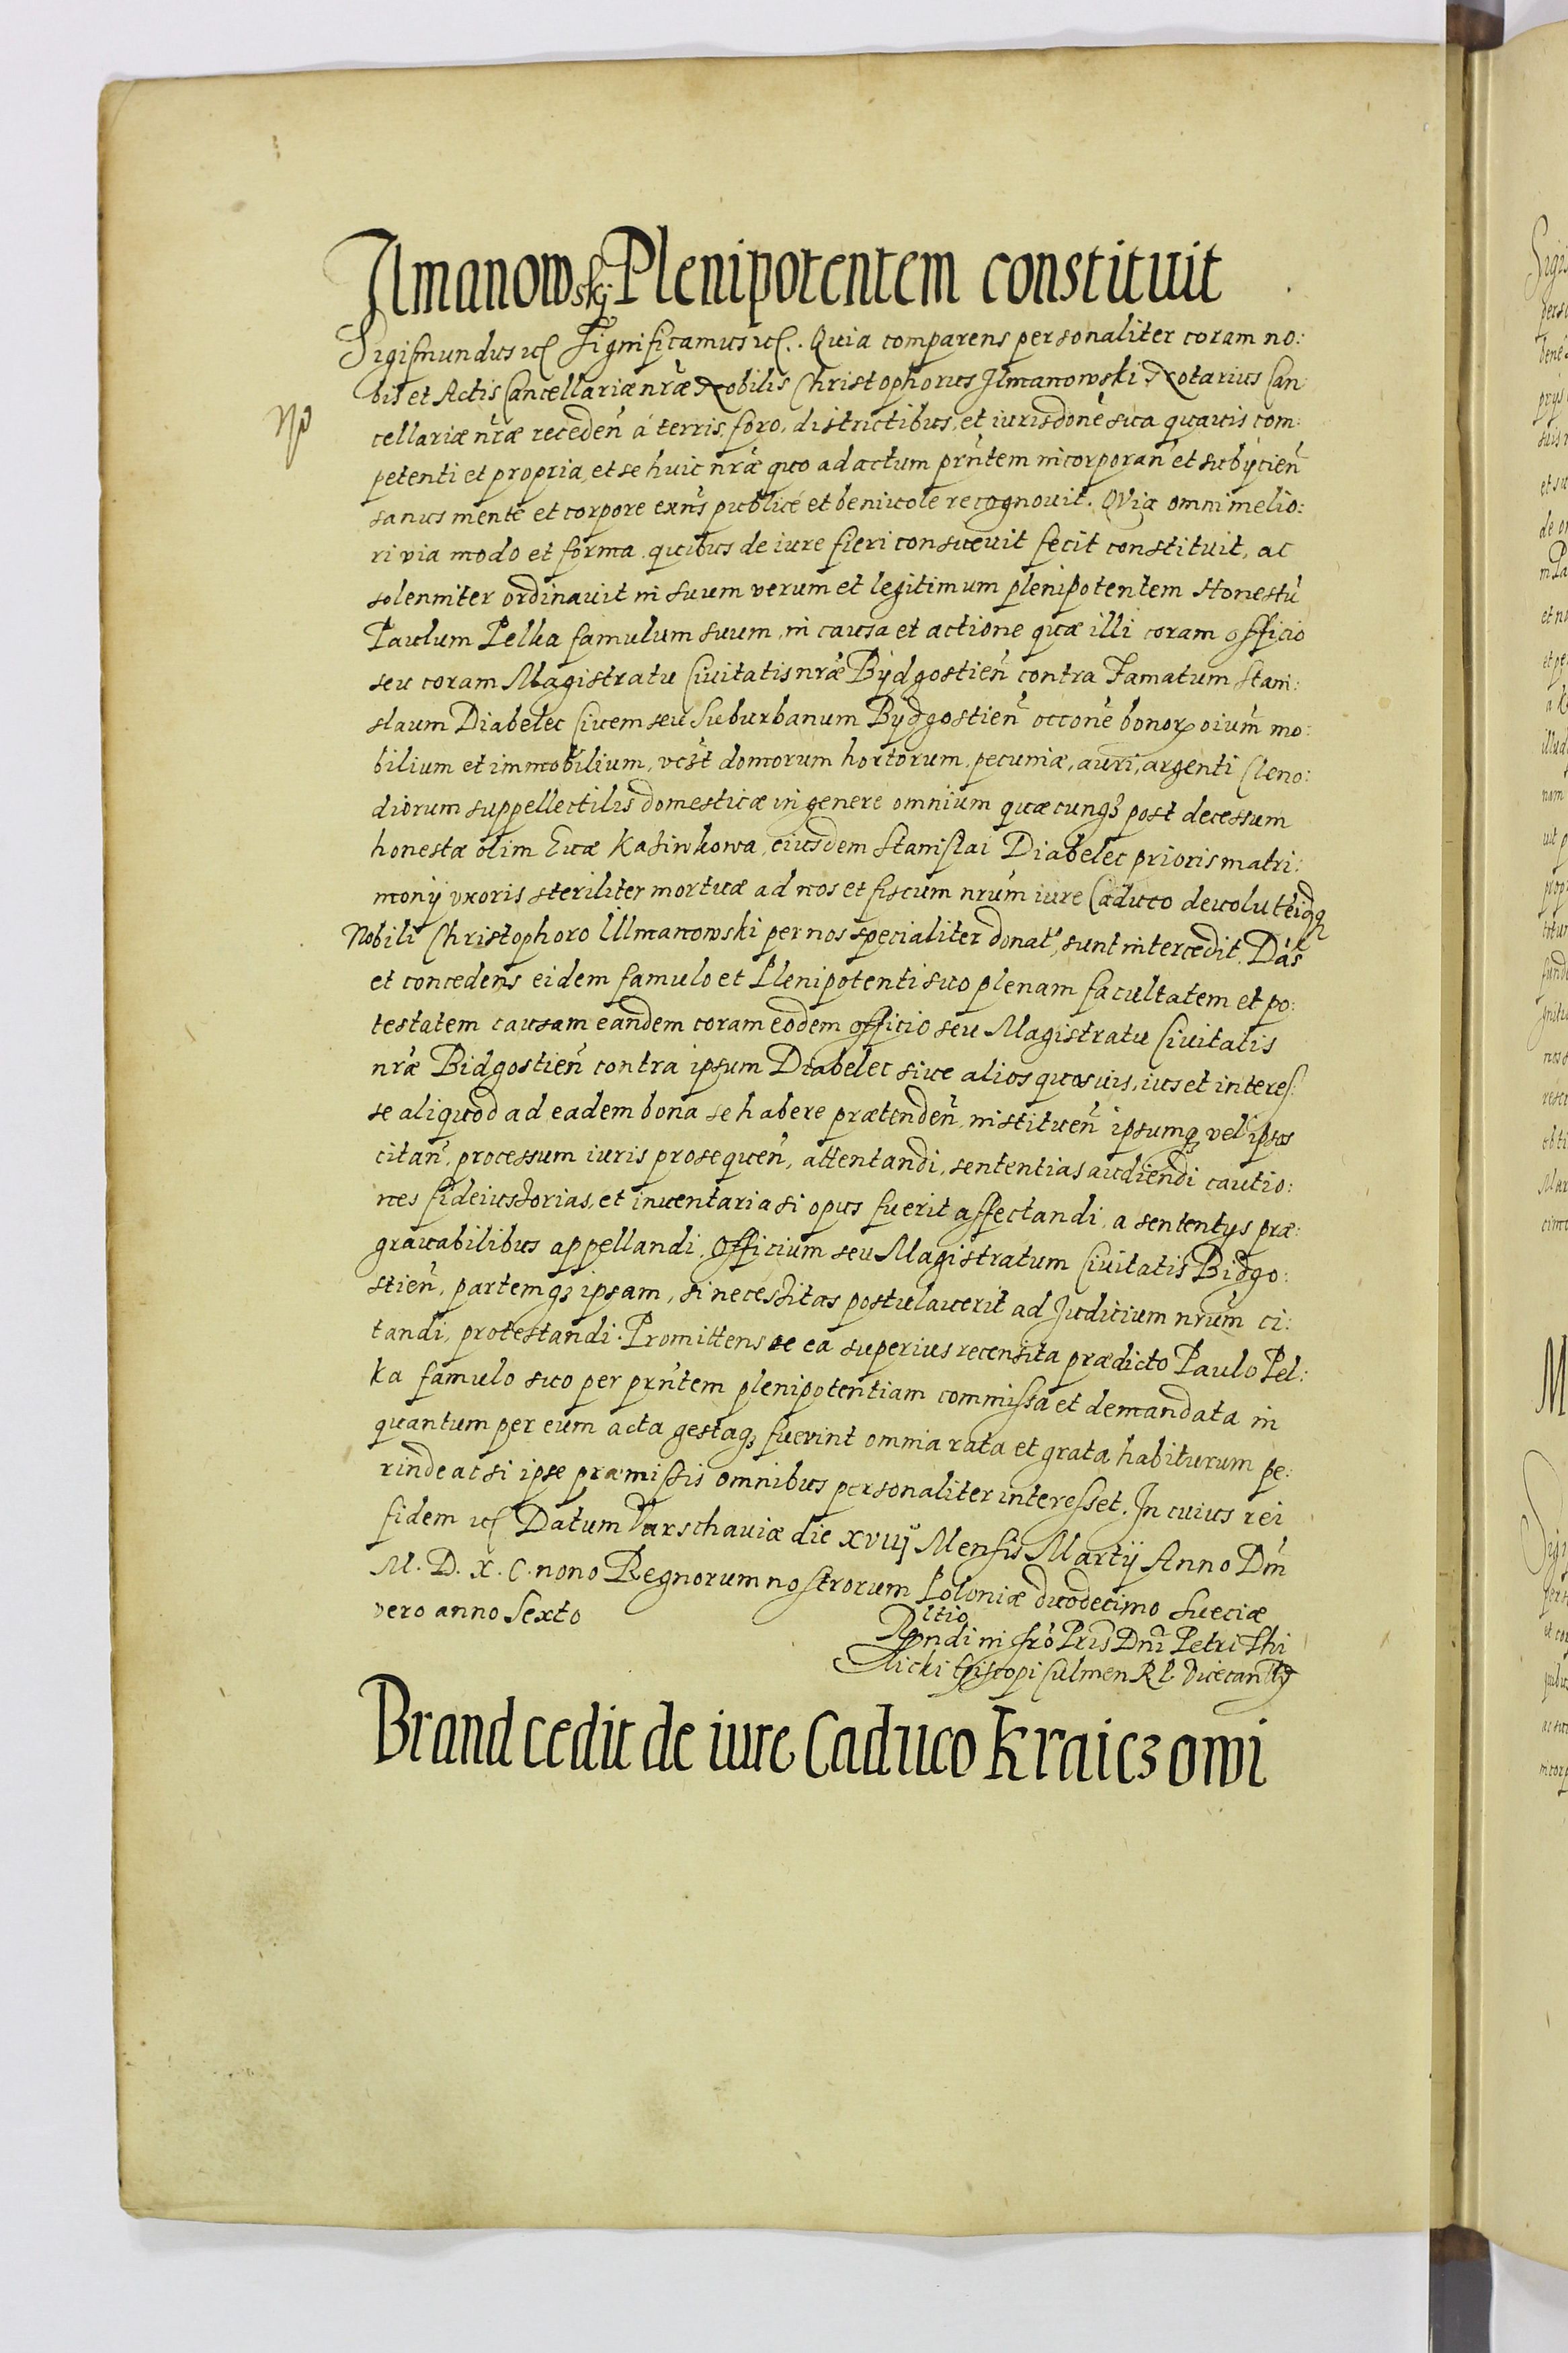 Ilmanowskj Plenipotentem constituit
Sigismundus etc Significamus etc. Quia comparens personaliter coram no:
bis et Actis Cancellariæ nræ Nobilis Christophorus Ilmanowski Notarius Can
cellariæ nræ receden̄ á terris, foro, districtibus, et iurisdone sua quavis com:
petenti et propria, et se huic nræ quo ad actum prn̄tem incorporan̄ et subÿcien̄
sanus mente et corpore exn̄s publicé et benivole recognovit. QVia omni melio:
ri via modo et forma quibus de iure fieri consuevit fecit constituit, ac
solenniter ordinavit in suum verum et legitimum plenipotentem Honestū
Paulum Pelka famulum suum, in causa et actione quæ illi coram officio
seu coram Magistratu Civitatis nræ Bÿdgostien̄ contra Famatum Stani:
slaum Diabelec Civem seu Suburbanum Bÿdgostien̄ occōne bonor oium̄ mo:
bilium et immobilium, vc̄st domorum hortorum, pecuniæ, auri, argenti Cleno:
diorum suppellectilis domesticæ in genere omnium quæcunq3 post decessum
honestæ olim Evæ Kasinkowa, eiusdem Stanislai Diabelec prioris matri:
monÿ uxoris steriliter mortuæ ad nos et fiscum nrūm iure Caduco devolut eidq3
Nobili Christophoro Ulmanowski per nos specialiter donat, sunt intercedit. Dās
et concedens eidem famulo et Plenipotenti suo plenam facultatem et po:
testatem causam eandem coram eodem officio seu Magistratu Civitatis
nræ Bidgostien̄ contra ipsum Diabelec sive alios quosvis, ius et interes:
se aliquod ad eadem bona se habere prætenden̄, instituen̄ ipsumq3 vel ipsos
citan̄, processum iuris prosequen̄, attentandi, sententias audiendi cautio:
nes fideiussorias, et inventaria si opus fuerit affectandi, a sententÿs præ:
gravabilibus appellandi, Officium seu Magistratum Civitatis Bidgo:
stien̄, partemq3 ipsam, si necessitas postulaverit ad Judicium nrūm ci:
tandi, protestandi. Promittens se ea superius recensita prædicto Paulo Pel:
ka famulo suo per prn̄tem plenipotentiam commissa et demandata in
quantum per eum acta gestaq3 fuerint omnia rata et grata habiturum pe:
rinde ac si ipse præmissis omnibus personaliter interesset. In cuius rei
fidem etc Datum Varschaviæ die xviij Mensis Martÿ Anno Dni
M. D. X. C. nono Regnorum nostrorum Poloniæ duodecimo Sueciæ
vero anno Sexto
Rltio
Rndi in Xrō Pris Dni Petri Thi
licki Episcopi Culmen R P Vicecanllÿ
Brand cedit de iure Caduco Kraiczowi